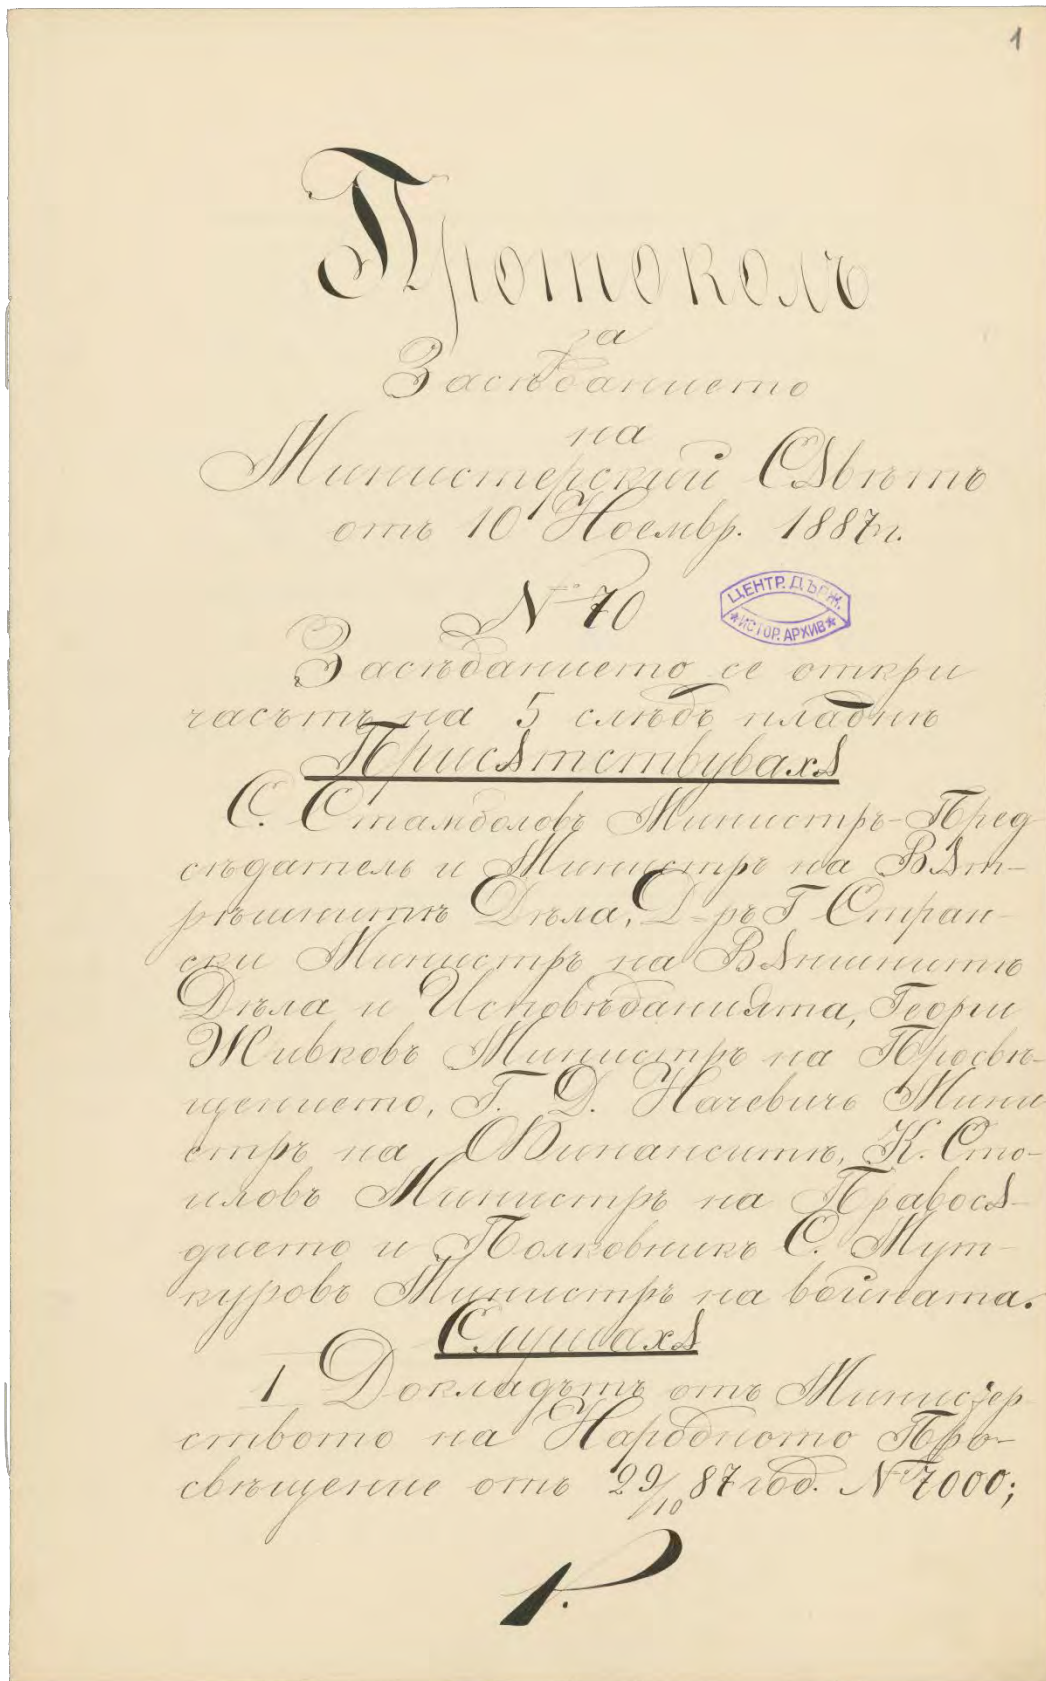 1
Протоколъ
за
Засѣданието
на
Министерский Съвѣтъ
отъ 10 Ноемвр. 1887 г.
№ 70
ЦЕНТР. ДЪРЖ.
*ИСТОР. АРХИВ*
Засѣданието се откри
часътъ на 5 слѣдъ пладнѣ
Присѫтствувахѫ
С. Стамболовъ Министръ-Пред
сѣдатель и Министръ на Вѫт-
рѣшнитѣ Дѣла, Д-ръ Г Стран-
ски Министръ на Вѫншнитѣ
Дѣла и Исповѣданията, Георги
Живковъ Министръ на Просвѣ-
щението, Г. Д. Начевичъ Мини
стръ на Финанситѣ, К. Сто-
иловъ Министръ на Правосѫ-
дието и Полковникъ С. Мут-
куровъ Министръ на войната.
Слушахѫ
I Докладътъ отъ Министер
ството на Народното Про-
свѣщение отъ 29/10 87 год. № 7000;
1.